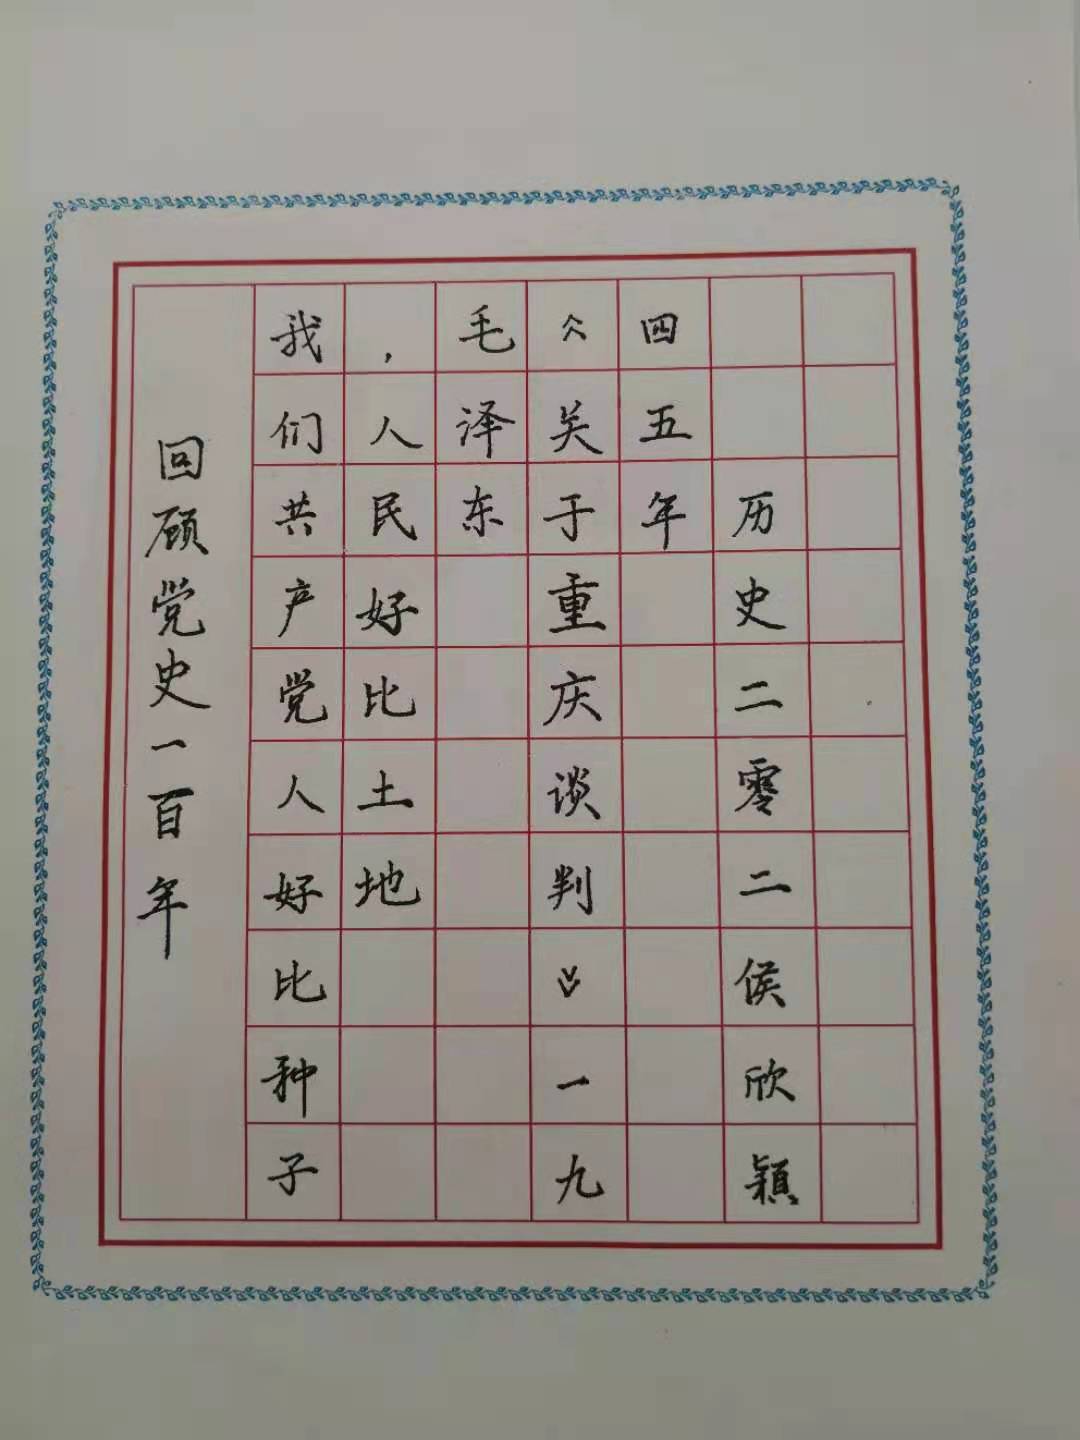 回顾党史一百年
我们共产党人好比种子
，人民好比土地
毛泽东
《关于重庆谈判》一九
四五年
历史二零二侯欣颖